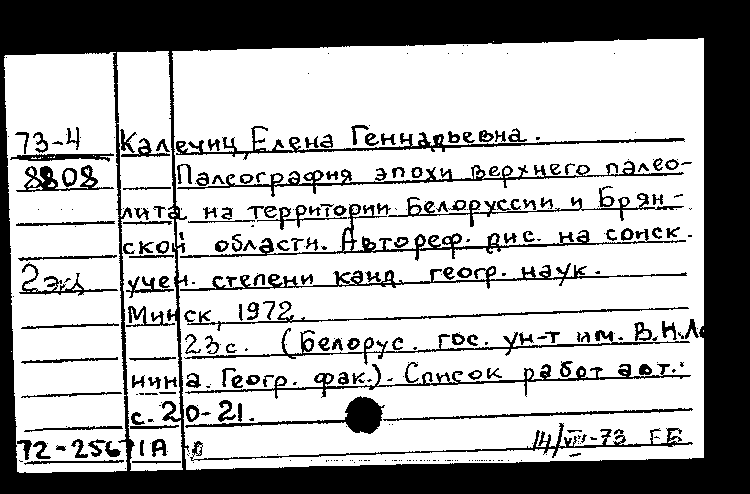 73-4 Калечиц, Елена Геннадьевна.
8808 Палеография эпохи верхнего палео-
лита на территории Белоруссии и Брян-
ской области. Автореф. дис. на соиск.
2 экз учен. степени канд. геогр. наук.
Минск, 1972.
23с. (Белорус. гос. ун-т им. В.И.Ле
нина. Геогр. фак.). Список работ авт.:
с. 20-21.
72-25671А 14/VIII-73 ЕБ